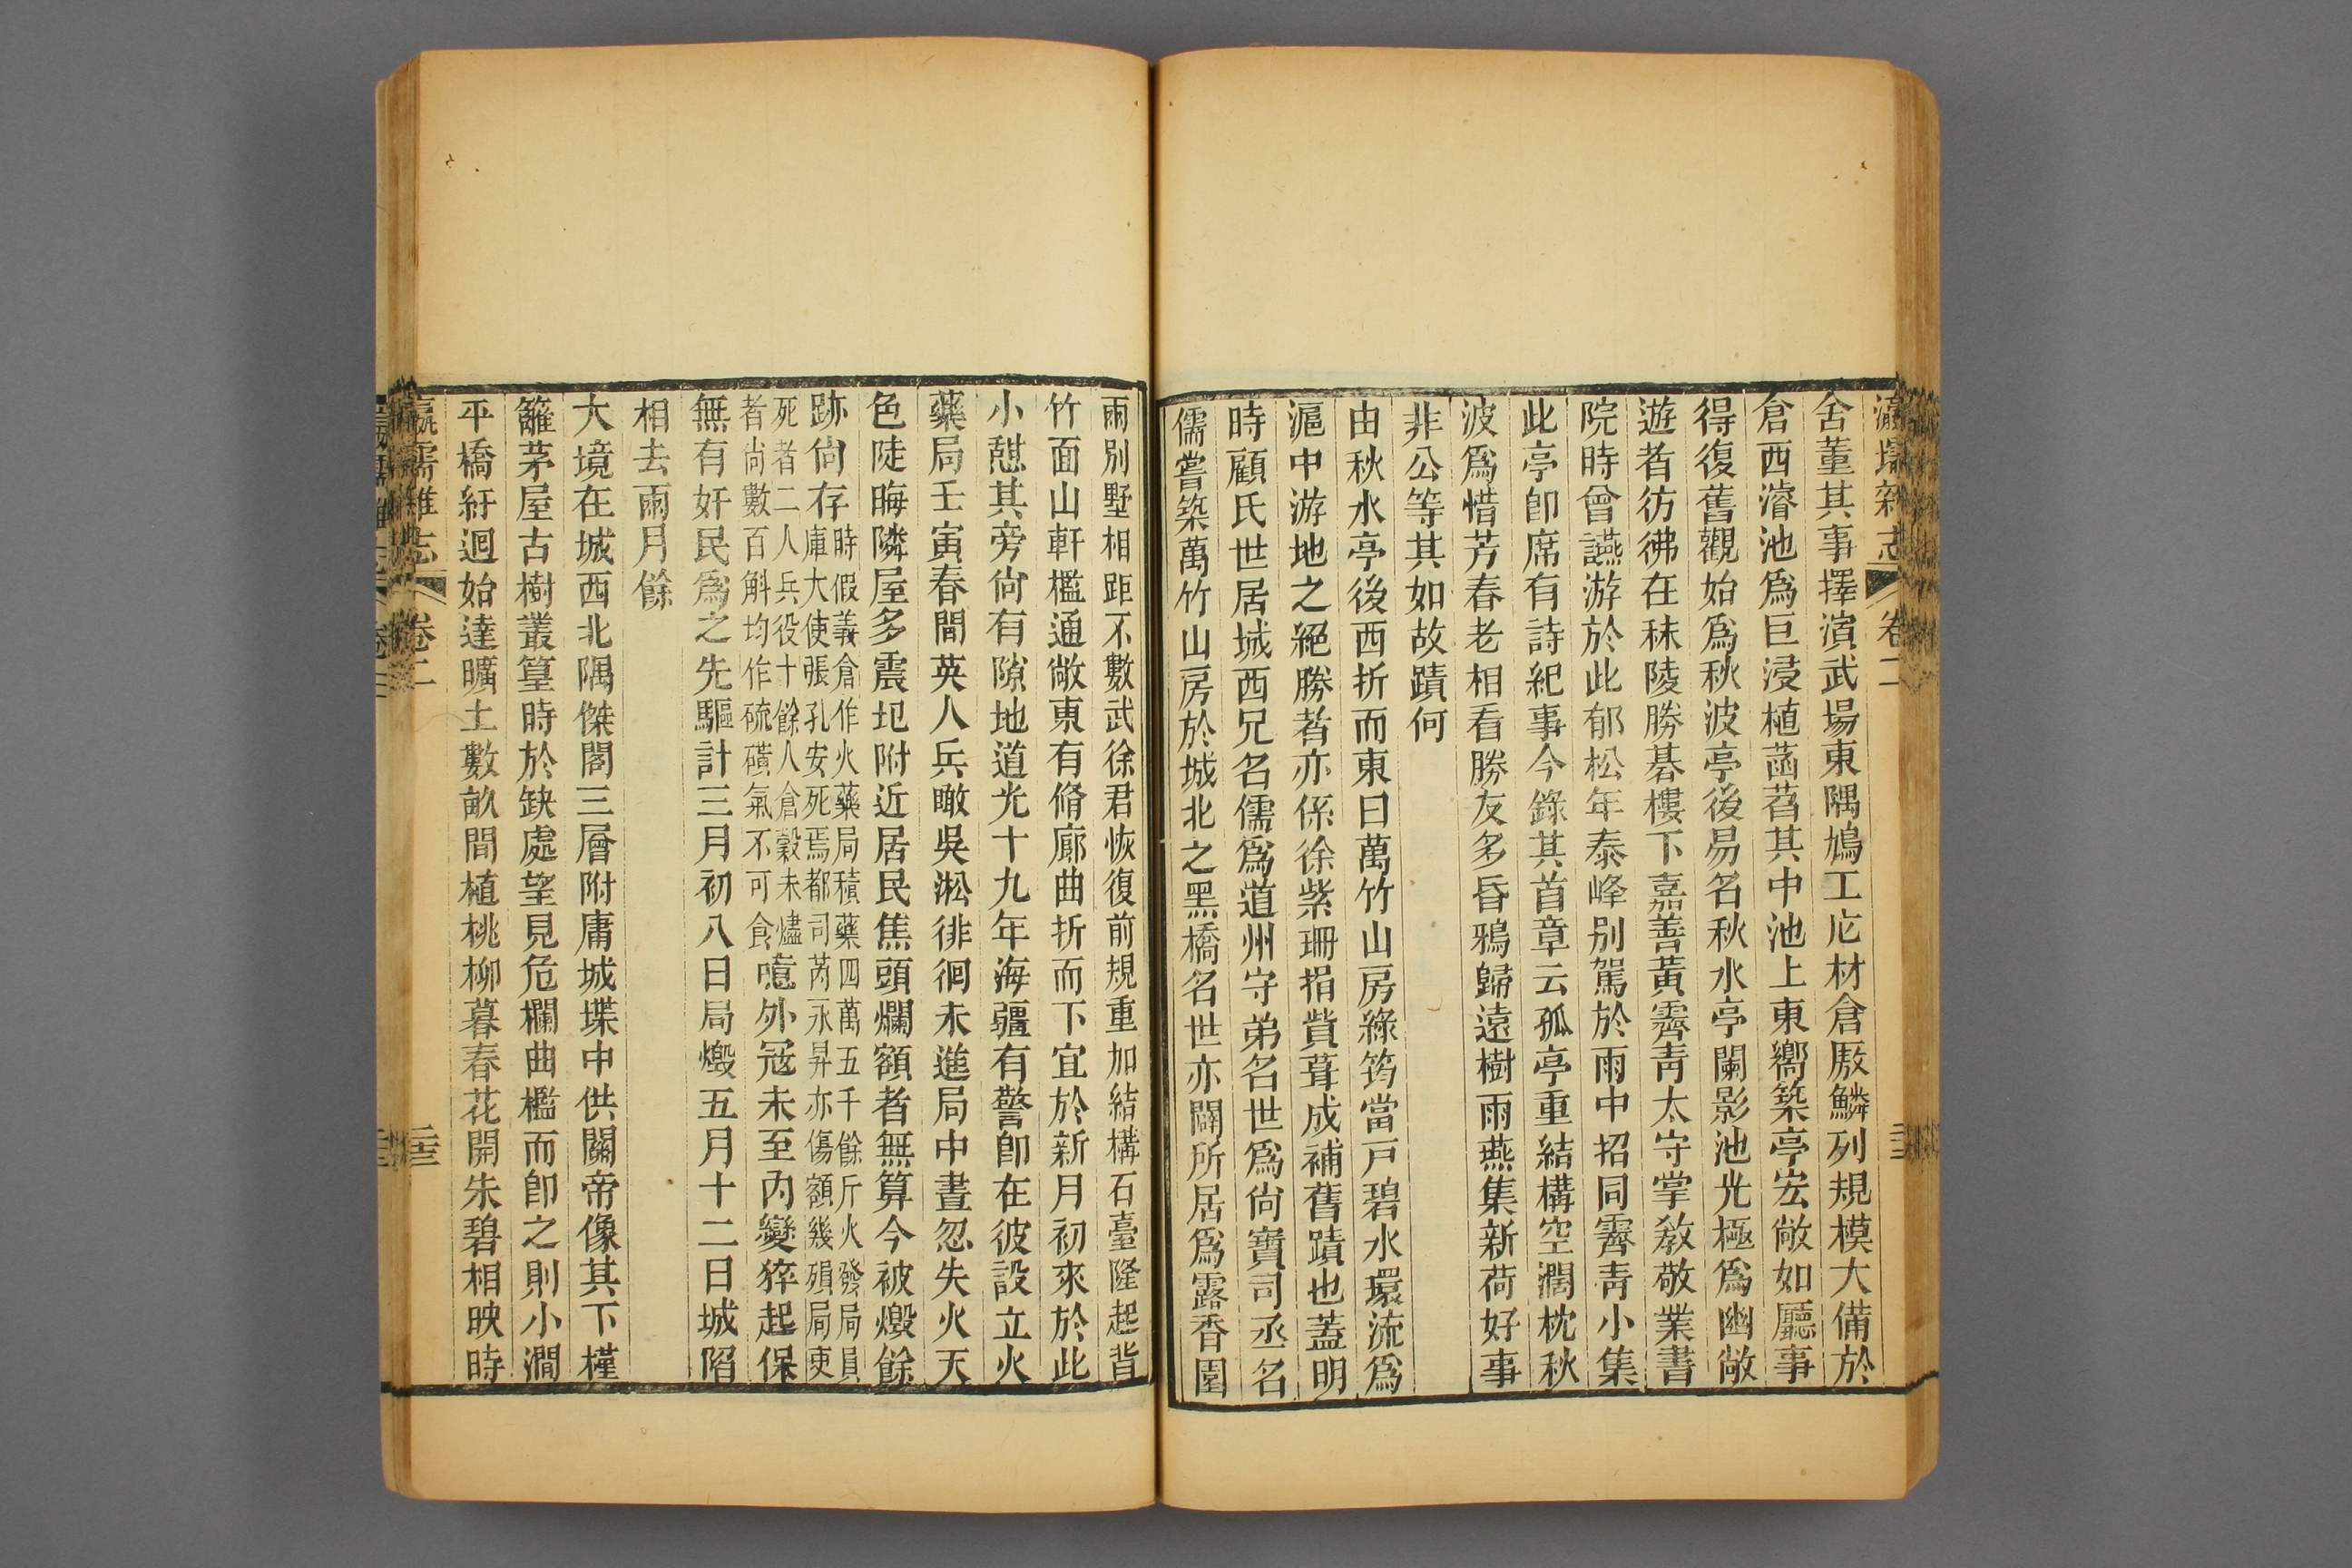 瀛壖雜志
卷二
舍董其事擇演武場東隅鳩工庀材倉厫鱗列規模大備於
倉西濬池爲巨浸植菡萏其中池上東嚮築亭宏敞如廳事
得復舊觀始爲秋波亭後易名秋水亭闌影池光極爲幽敞
遊者彷彿在秣陵勝碁樓下嘉善黃霽青太守掌敎敬業書
院時曾讌游於此郁松年泰峰別駕於雨中招同霽青小集
此亭卽席有詩紀事今錄其首章云孤亭重結構空濶枕秋
波爲惜芳春老相看勝友多昏鴉歸遠樹雨燕集新荷好事
非公等其如故蹟何
由秋水亭後西折而東曰萬竹山房綠筠當戸碧水環流爲
滬中游地之絕勝者亦係徐紫珊捐貲葺成補舊蹟也蓋明
時顧氏世居城西兄名儒爲道州守弟名世爲尙寶司丞名
儒嘗築萬竹山房於城北之黑橋名世亦闢所居爲露香園
兩別墅相距不數武徐君恢復前規重加結構石臺隆起背
竹面山軒檻通敞東有脩廊曲折而下宜於新月初來於此
小憇其旁尙有隙地道光十九年海疆有警卽在彼設立火
藥局壬寅春間英人兵瞰吳淞徘徊未進局中晝忽失火天
色陡晦隣屋多震圯附近居民焦頭爛額者無算今被燬餘
跡尙存時假義倉作火藥局積藥四萬五千餘斤火發局員
庫大使張孔安死焉都司芮永昇亦傷額幾殞局吏
死者二人兵役十餘人倉穀未燼
者尙數百斛均作硫磺氣不可食噫外冦未至內變猝起保
無有奸民爲之先驅計三月初八日局燬五月十二日城陷
相去兩月餘
大境在城西北隅傑閣三層附庸城堞中供關帝像其下槿
籬茅屋古樹叢篁時於缺處望見危欄曲檻而卽之則小澗
平橋紆迴始達曠土數畝間植桃柳暮春花開朱碧相映時
瀛壖雜志
卷二